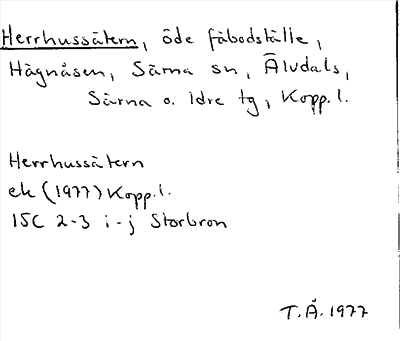 Herrhussätern, öde fäbodställe,
Hägnåsen, Särna sn, Älvdals,
Särna o. Idre tg, Kopp.l.
Herrhussätern
ek (1977) Kopp.l.
15C 2-3 i-j Storbron
T.Å. 1977